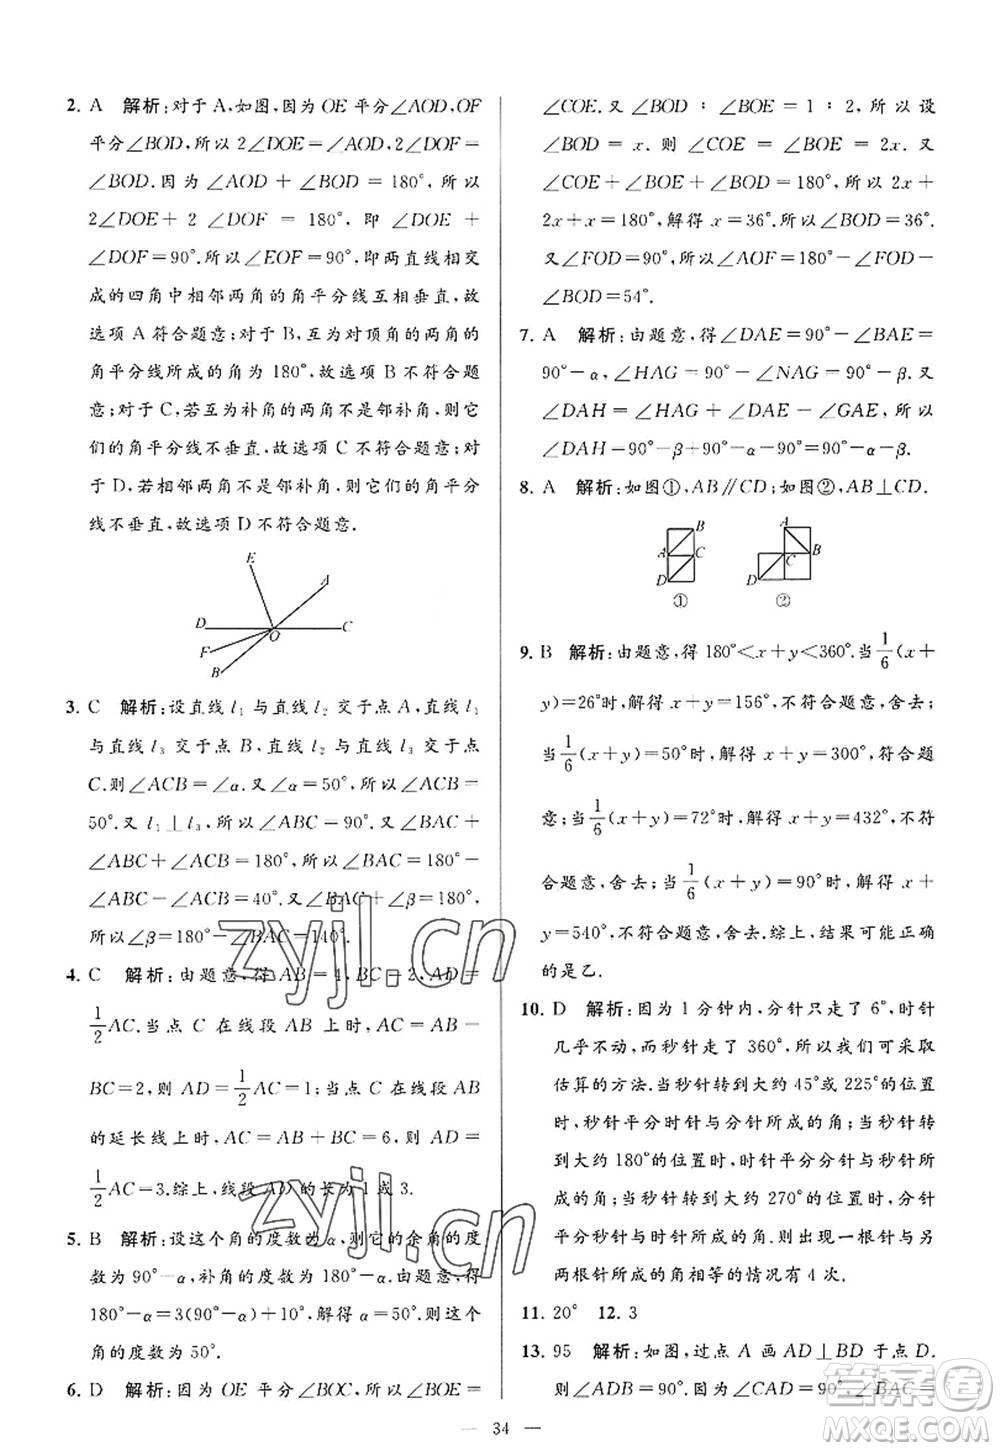 2. A 解析:对于A,如图,因为OE平分∠AOD,OF
平分∠BOD,所以2∠DOE=∠AOD,2∠DOF=
∠BOD.因为∠AOD+∠BOD=180°,所以
2∠DOE+2∠DOF=180°,即∠DOE+
∠DOF=90°.所以∠EOF=90°,即两直线相交
成的四角中相邻两角的角平分线互相垂直,故
选项A符合题意;对于B,互为对顶角的两角的
角平分线所成的角为180°,故选项B不符合题
意;对于C,若互为补角的两角不是邻补角,则它
们的角平分线不垂直,故选项C不符合题意;对
于D,若相邻两角不是邻补角,则它们的角平分
线不垂直,故选项D不符合题意.
E
A
D
O
C
F
B
3. C 解析:设直线l₁与直线l₂交于点A,直线l₁
与直线l₃交于点B,直线l₂与直线l₃交于点
C.则∠ACB=∠α.又∠α=50°,所以∠ACB=
50°.又l₁⊥l₃,所以∠ABC=90°.又∠BAC+
∠ABC+∠ACB=180°,所以∠BAC=180°-
∠ABC-∠ACB=40°.又∠BAC+∠β=180°,
所以∠β=180°-∠BAC=140°.
4. C 解析:由题意,得AB=4,BC=2,AD=
1/2AC.当点C在线段AB上时,AC=AB-
BC=2,则AD=1/2AC=1;当点C在线段AB
的延长线上时,AC=AB+BC=6,则AD=
1/2AC=3.综上,线段AD的长为1或3.
5. B 解析:设这个角的度数为α,则它的余角的度
数为90°-α,补角的度数为180°-α.由题意,得
180°-α=3(90°-α)+10°,解得α=50°.即这
个角的度数为50°.
6. D 解析:因为OE平分∠BOC,所以∠BOE=
∠COE.又∠BOD:∠BOE=1:2,所以设
∠BOD=x.则∠COE=∠BOE=2x.又
∠COE+∠BOE+∠BOD=180°,所以2x+
2x+x=180°,解得x=36°.所以∠BOD=36°.
又∠FOD=90°,所以∠AOF=180°-∠FOD-
∠BOD=54°.
7. A 解析:由题意,得∠DAE=90°-∠BAE=
90°-α,∠HAG=90°-∠NAG=90°-β.又
∠DAH=∠HAG+∠DAE-∠GAE,所以
∠DAH=90°-β+90°-α-90°=90°-α-β.
8. A 解析:如图①,AB∥CD;如图②,AB⊥CD.
B
A
C
D
①
A
B
C
D
②
9. B 解析:由题意,得180°<x+y<360°.当1/6(x+
y)=26°时,解得x+y=156°,不符合题意,舍去;
当1/6(x+y)=50°时,解得x+y=300°,符合题
意;当1/6(x+y)=72°时,解得x+y=432°,不符
合题意,舍去;当1/6(x+y)=90°时,解得x+
y=540°,不符合题意,舍去.综上,结果可能正确
的是乙.
10. D 解析:因为1分钟内,分针只走了6°,时针
几乎不动,而秒针走了360°,所以我们可采取
估算的方法.当秒针转到大约45°或225°的位
置时,秒针平分时针与分针所成的角;当秒针转
到大约180°的位置时,时针平分分针与秒针所
成的角;当秒针转到大约270°的位置时,分针平
分秒针与时针所成的角.综上,出现一根针与另
两根针所成的角相等的情况有4次.
11. 20° 12. 3
13. 95 解析:如图,过点A画AD⊥BD于点D.
则∠ADB=90°.因为∠CAD=90°,∠BAC=
— 34 —
zyjl.cn
zyjl.cn
答案圈
MXQE.COM